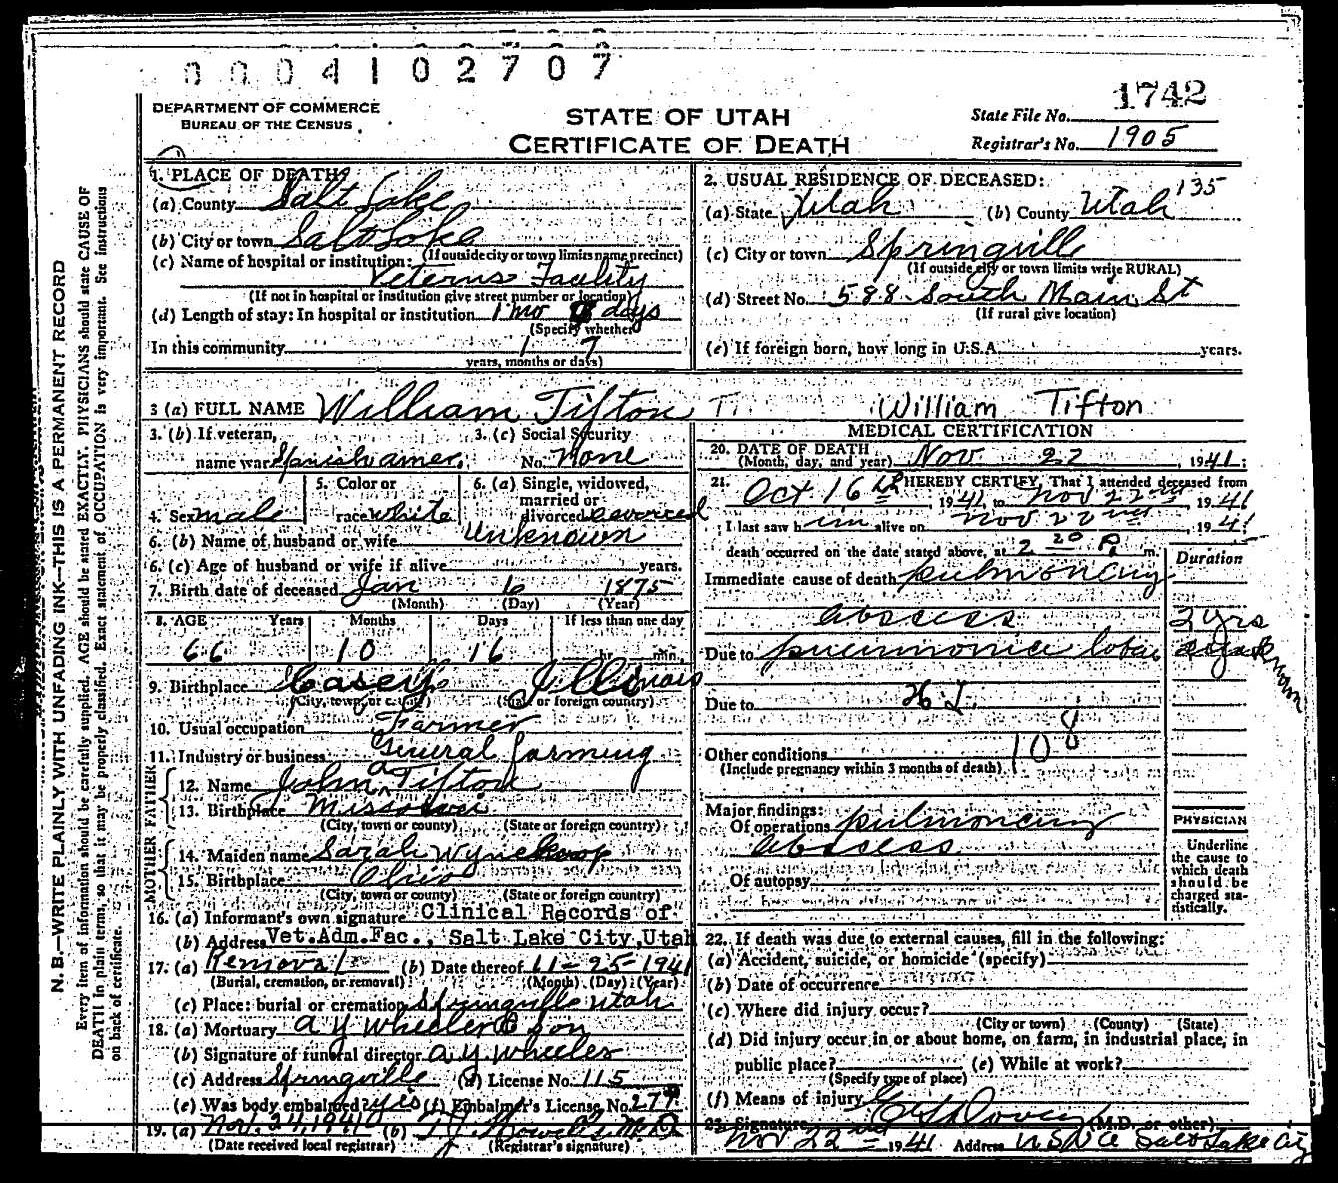 0004102707
1742
DEPARTMENT OF COMMERCE
BUREAU OF THE CENSUS
STATE OF UTAH
CERTIFICATE OF DEATH
State File No.
Registrar's No. 1905
N. B.—WRITE PLAINLY WITH UNFADING INK—THIS IS A PERMANENT RECORD
Every item of information should be carefully supplied. AGE should be stated EXACTLY. PHYSICIANS should state CAUSE OF
DEATH in plain terms, so that it may be properly classified. Exact statement of OCCUPATION is very important. See instructions
on back of certificate.
1. PLACE OF DEATH:
(a) County Salt Lake
(b) City or town Salt Lake
(If outside city or town limits name precinct)
(c) Name of hospital or institution:
Veterns Facility
(If not in hospital or institution give street number or location)
(d) Length of stay: In hospital or institution 1 mo 7 days
(Specify whether
In this community 1 7
years, months or days)
2. USUAL RESIDENCE OF DECEASED:
135
(a) State Utah (b) County Utah
(c) City or town Springville
(If outside city or town limits write RURAL)
(d) Street No. 588 South Main St
(If rural give location)
(e) If foreign born, how long in U.S.A. years.
3 (a) FULL NAME William Tifton William Tifton
3. (b) If veteran,
name war Spanish amer.
3. (c) Social Security
No. None
4. Sex male
5. Color or
race white
6. (a) Single, widowed,
married or
divorced Divorced
6. (b) Name of husband or wife Unknown
6. (c) Age of husband or wife if alive years.
7. Birth date of deceased Jan 6 1875
(Month) (Day) (Year)
8. AGE Years Months Days If less than one day
66 10 16 hr. min.
9. Birthplace Casey Illinois
(City, town, or county) (State or foreign country)
10. Usual occupation Farmer
11. Industry or business General farming
FATHER
12. Name John a Tifton
13. Birthplace Missouri
(City, town or county) (State or foreign country)
MOTHER
14. Maiden name Sarah Wynekoop
15. Birthplace Ohio
(City, town or county) (State or foreign country)
16. (a) Informant's own signature Clinical Records of
(b) Address Vet.Adm.Fac., Salt Lake City, Utah
17. (a) Removal (b) Date thereof 11-25-1941
(Burial, cremation, or removal) (Month) (Day) (Year)
(c) Place: burial or cremation Springville Utah
18. (a) Mortuary a y wheeler & son
(b) Signature of funeral director a y wheeler
(c) Address Springville (d) License No. 115
(e) Was body embalmed? yes (f) Embalmer's License No. 279
19. (a) Nov. 24, 1941 (b)
(Date received local registrar) (Registrar's signature)
MEDICAL CERTIFICATION
20. DATE OF DEATH
(Month, day, and year) Nov 22, 1941;
21. I HEREBY CERTIFY, That I attended deceased from
Oct 16th, 1941, to Nov 22nd, 1941
I last saw him alive on Nov 22nd, 1941
death occurred on the date stated above, at 2 20 P. m.
Duration
Immediate cause of death pulmonary
abscess 2 yrs
Due to pneumonia lobar
Due to
108
Other conditions
(Include pregnancy within 3 months of death)
Major findings:
Of operations pulmonary
abscess
Of autopsy
PHYSICIAN
Underline
the cause to
which death
should be
charged sta-
tistically.
22. If death was due to external causes, fill in the following:
(a) Accident, suicide, or homicide (specify)
(b) Date of occurrence
(c) Where did injury occur?
(City or town) (County) (State)
(d) Did injury occur in or about home, on farm, in industrial place, in
public place? (e) While at work?
(Specify type of place)
(f) Means of injury
23. Signature (M.D. or other)
Nov 22nd 1941 Address Salt Lake City